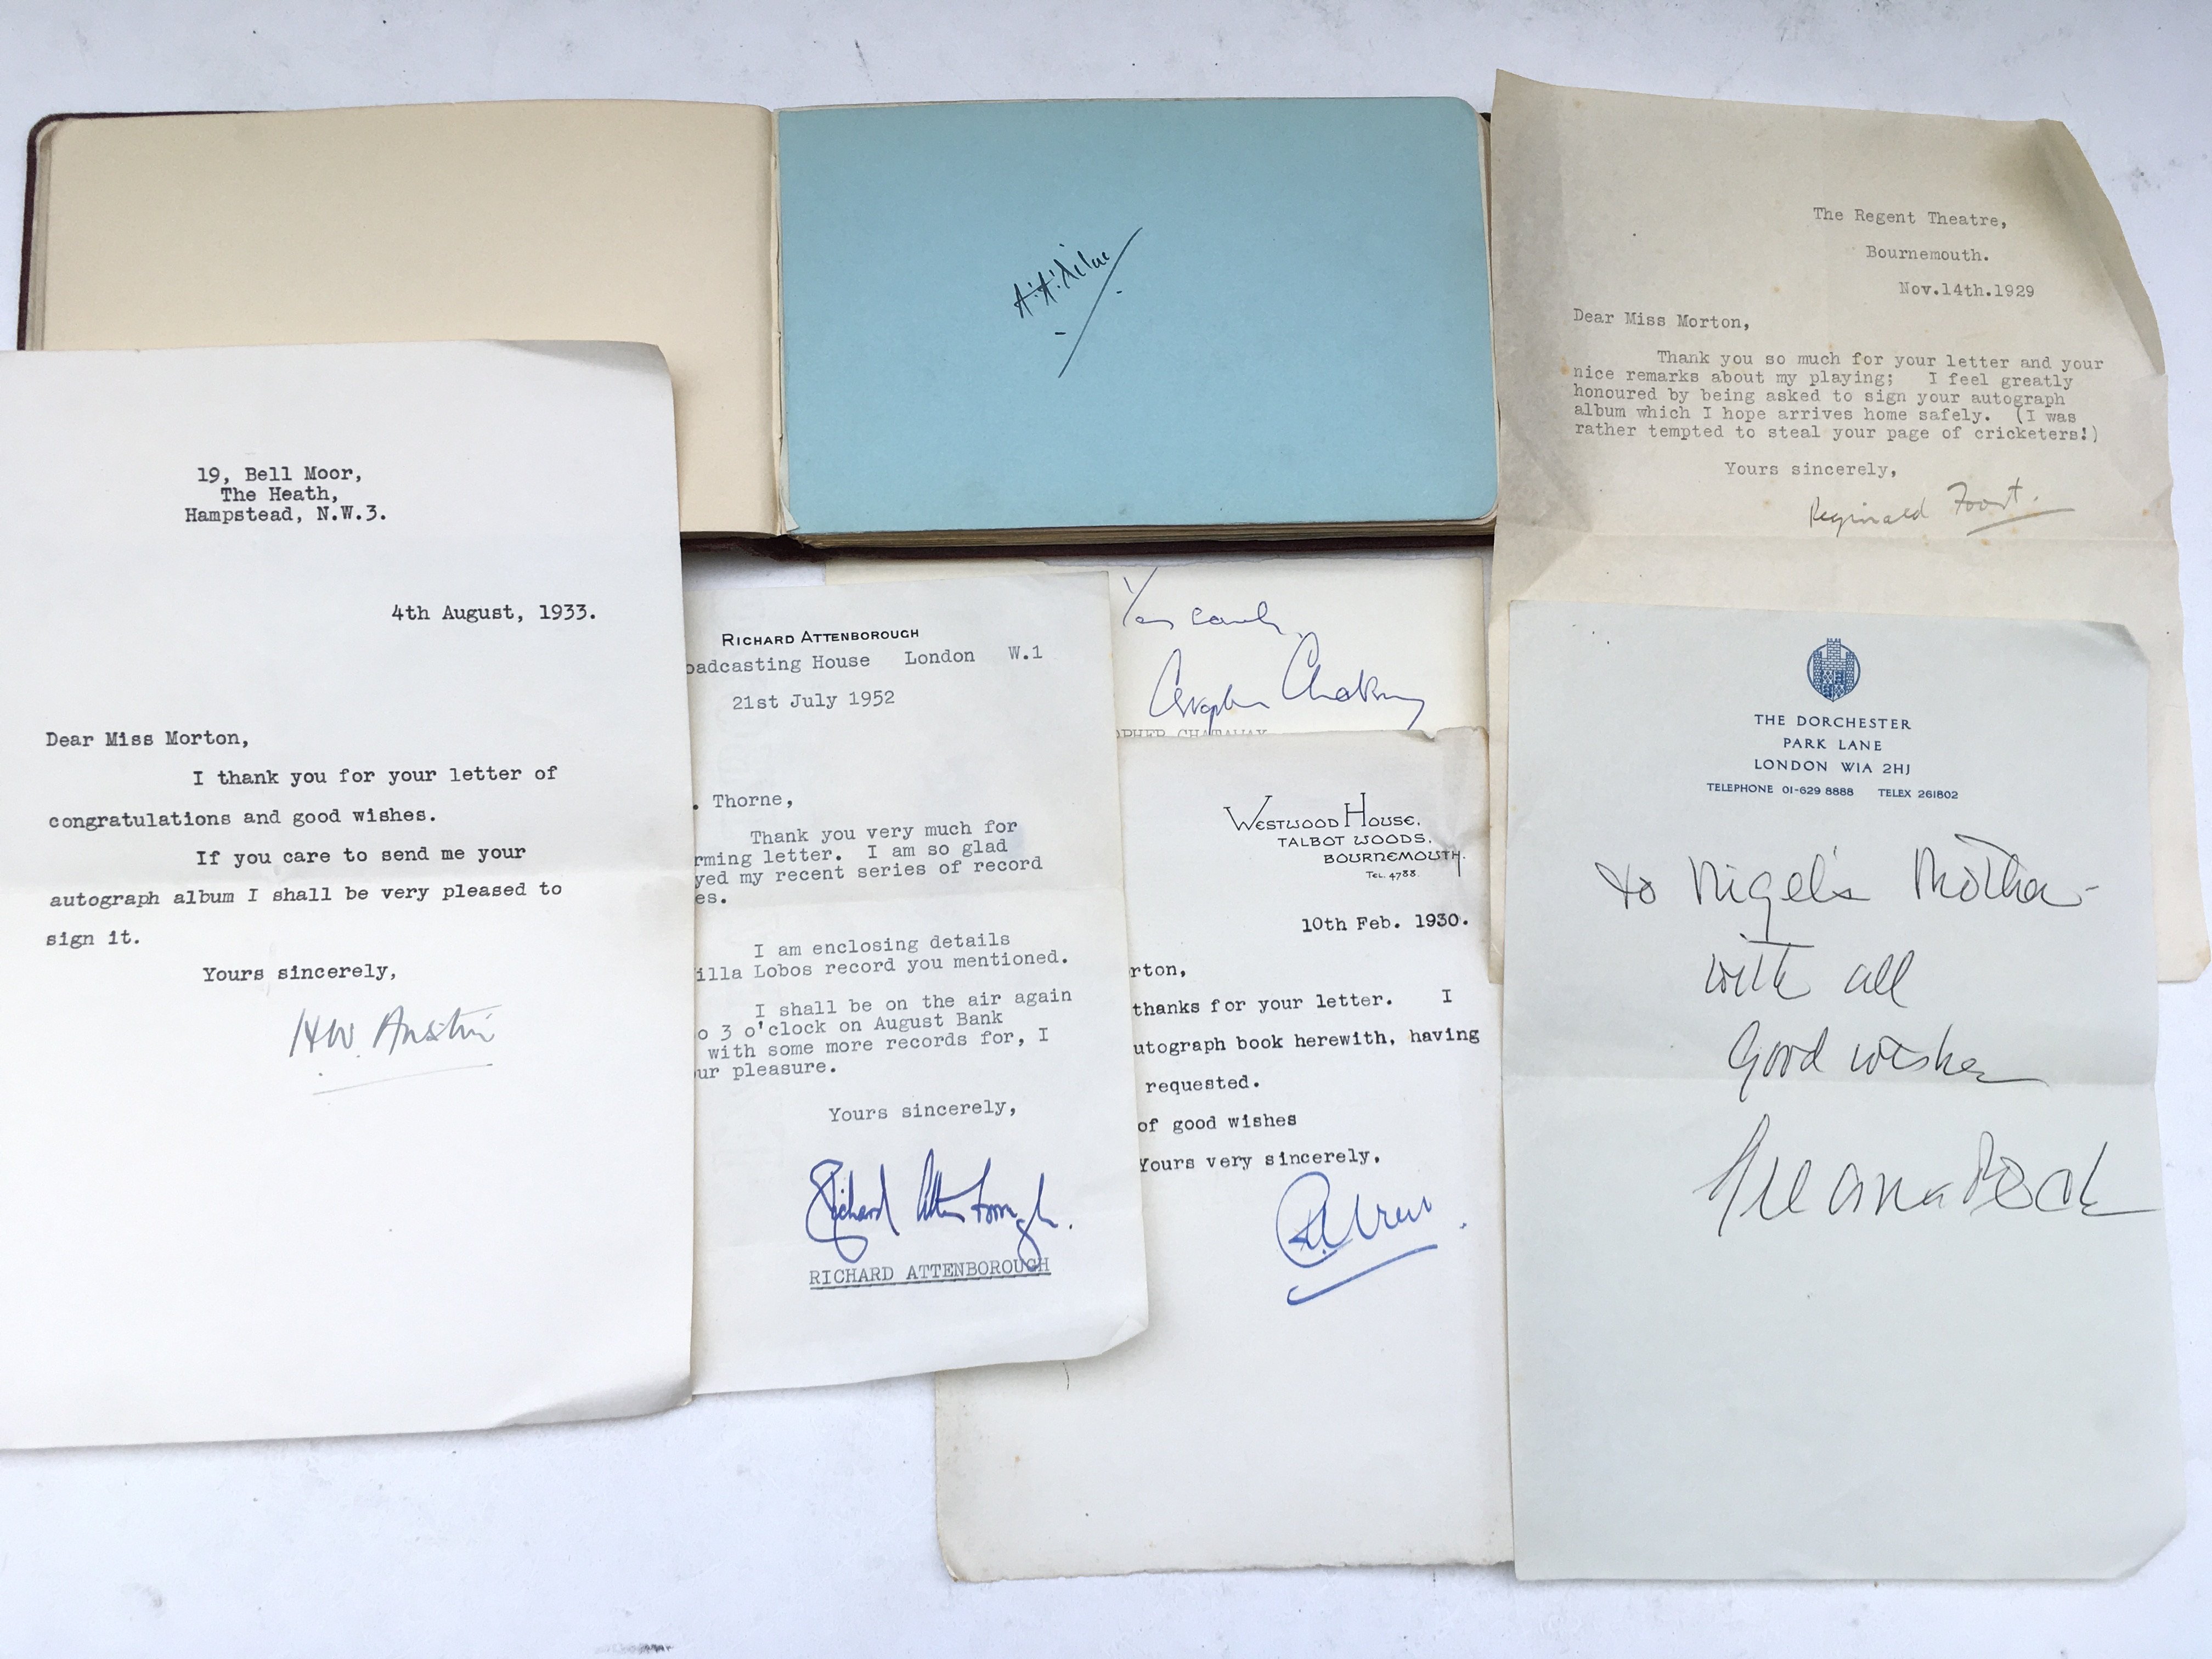 A.A. Milne
The Regent Theatre,
Bournemouth.
Nov.14th.1929
Dear Miss Morton,
Thank you so much for your letter and your
nice remarks about my playing; I feel greatly
honoured by being asked to sign your autograph
album which I hope arrives home safely. (I was
rather tempted to steal your page of cricketers!)
Yours sincerely,
Reginald Foort.
19, Bell Moor,
The Heath,
Hampstead, N.W.3.
4th August, 1933.
Dear Miss Morton,
I thank you for your letter of
congratulations and good wishes.
If you care to send me your
autograph album I shall be very pleased to
sign it.
Yours sincerely,
H.W. Austin
RICHARD ATTENBOROUGH
oadcasting House London W.1
21st July 1952
. Thorne,
Thank you very much for
rming letter. I am so glad
yed my recent series of record
es.
I am enclosing details
illa Lobos record you mentioned.
I shall be on the air again
o 3 o'clock on August Bank
with some more records for, I
ur pleasure.
Yours sincerely,
Richard Attenborough.
RICHARD ATTENBOROUGH
Christopher Chataway
OPHER CHATAWAY
WESTWOOD HOUSE,
TALBOT WOODS,
BOURNEMOUTH.
TEL. 4788.
10th Feb. 1930.
rton,
thanks for your letter. I
utograph book herewith, having
requested.
of good wishes
Yours very sincerely,
THE DORCHESTER
PARK LANE
LONDON W1A 2HJ
TELEPHONE 01-629 8888 TELEX 261802
to Nigel's Mother-
with all
Good wishes